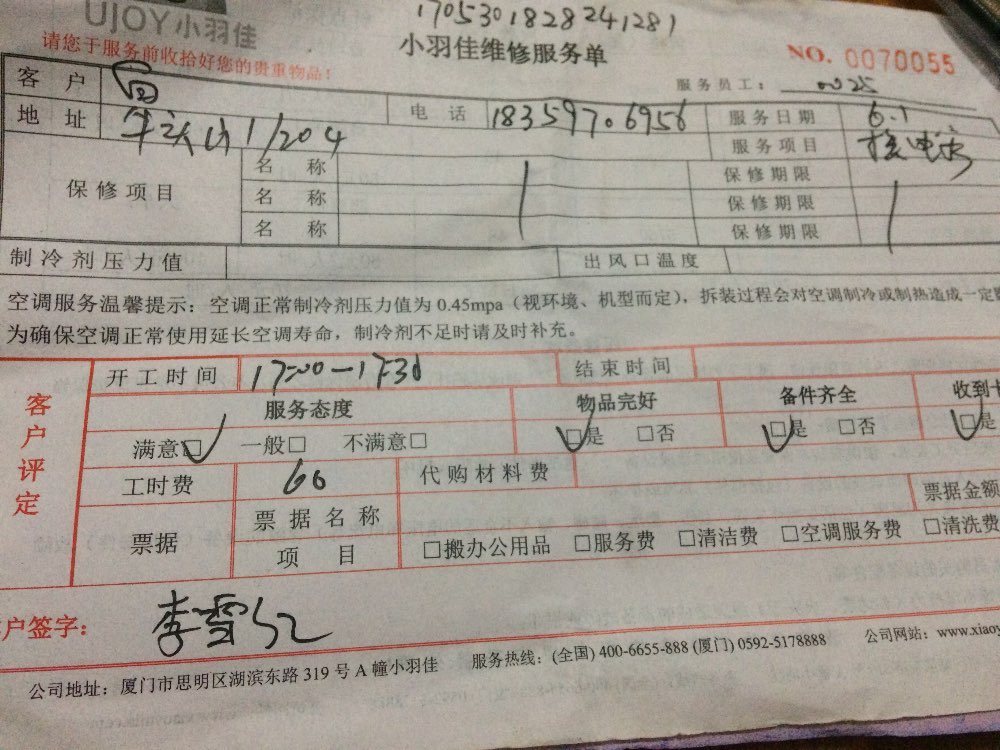 1705301828241281
UJOY小羽佳
小羽佳维修服务单
NO. 0070055
请您于服务前收拾好您的贵重物品!
服务员工: 0025
客户
电话 18359706956 服务日期 6.1
地址 牛头山1/204 服务项目
保修项目 名称 保修期限
名称 保修期限
名称 保修期限
制冷剂压力值 出风口温度
空调服务温馨提示:空调正常制冷剂压力值为 0.45mpa(视环境、机型而定),拆装过程会对空调制冷或制热造成一定
为确保空调正常使用延长空调寿命,制冷剂不足时请及时补充。
客户评定
开工时间 17:00—17:30 结束时间
服务态度 物品完好 备件齐全 收到
满意□ 一般□ 不满意□ □是 □否 □是 □否 □是
工时费 60 代购材料费
票据 票据名称 票据金额
项目 □搬办公用品 □服务费 □清洁费 □空调服务费 □清洗费
户签字: 李雪红
公司地址:厦门市思明区湖滨东路 319 号 A 幢小羽佳 服务热线:(全国) 400-6655-888 (厦门) 0592-5178888 公司网站:www.xiaoy